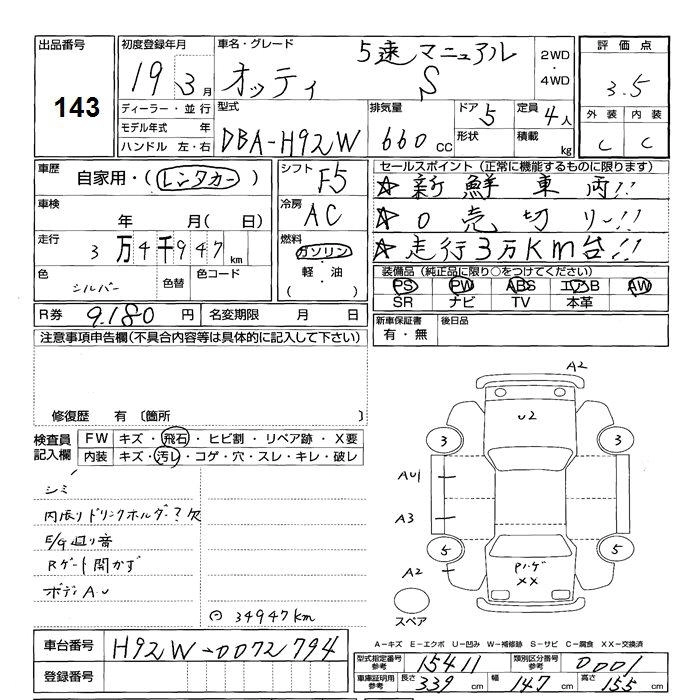 出品番号
143
初度登録年月
19 3月
車名・グレード
オッティ
5速マニュアル
S
2WD
・
4WD
評価点
3.5
外装 内装
C C
ディーラー・並行
モデル年式 年
ハンドル 左・右
型式
DBA-H92W
排気量
660cc
ドア 5
形状
定員 4人
積載 kg
車歴
自家用・(レンタカー)
車検
年 月(日)
走行
3万4千947km
色
シルバー
色替
色コード
シフト
F5
冷房
AC
燃料
ガソリン
軽・油
( )
セールスポイント(正常に機能するものに限ります)
☆新鮮車両!!
☆0売切り−!!
☆走行3万Km台!!
装備品(純正品に限り○をつけてください)
PS PW ABS エアB AW
SR ナビ TV 本革
R券 9,180円
名変期限 月 日
新車保証書
有・無
後日品
注意事項申告欄(不具合内容等は具体的に記入して下さい)
修復歴 有〔箇所 〕
検査員
記入欄
FW キズ・飛石・ヒビ割・リペア跡・X要
内装 キズ・汚レ・コゲ・穴・スレ・キレ・破レ
シミ
内張りドリンクホルダー?欠
E/G廻り音
Rゲート開かず
ボディA.U
⊙ 34947km
A2
U2
3 3
AU1
A3
5 5
A2
Rゲート
XX
スペア
A-キズ E-エクボ U-凹み W-補修跡 S-サビ C-腐食 XX-交換済
車台番号
H92W-0072794
登録番号
型式指定番号
参考
15411
類別区分番号
参考
0001
車庫証明用
参考
長さ 339cm 幅 147cm 高さ 155cm